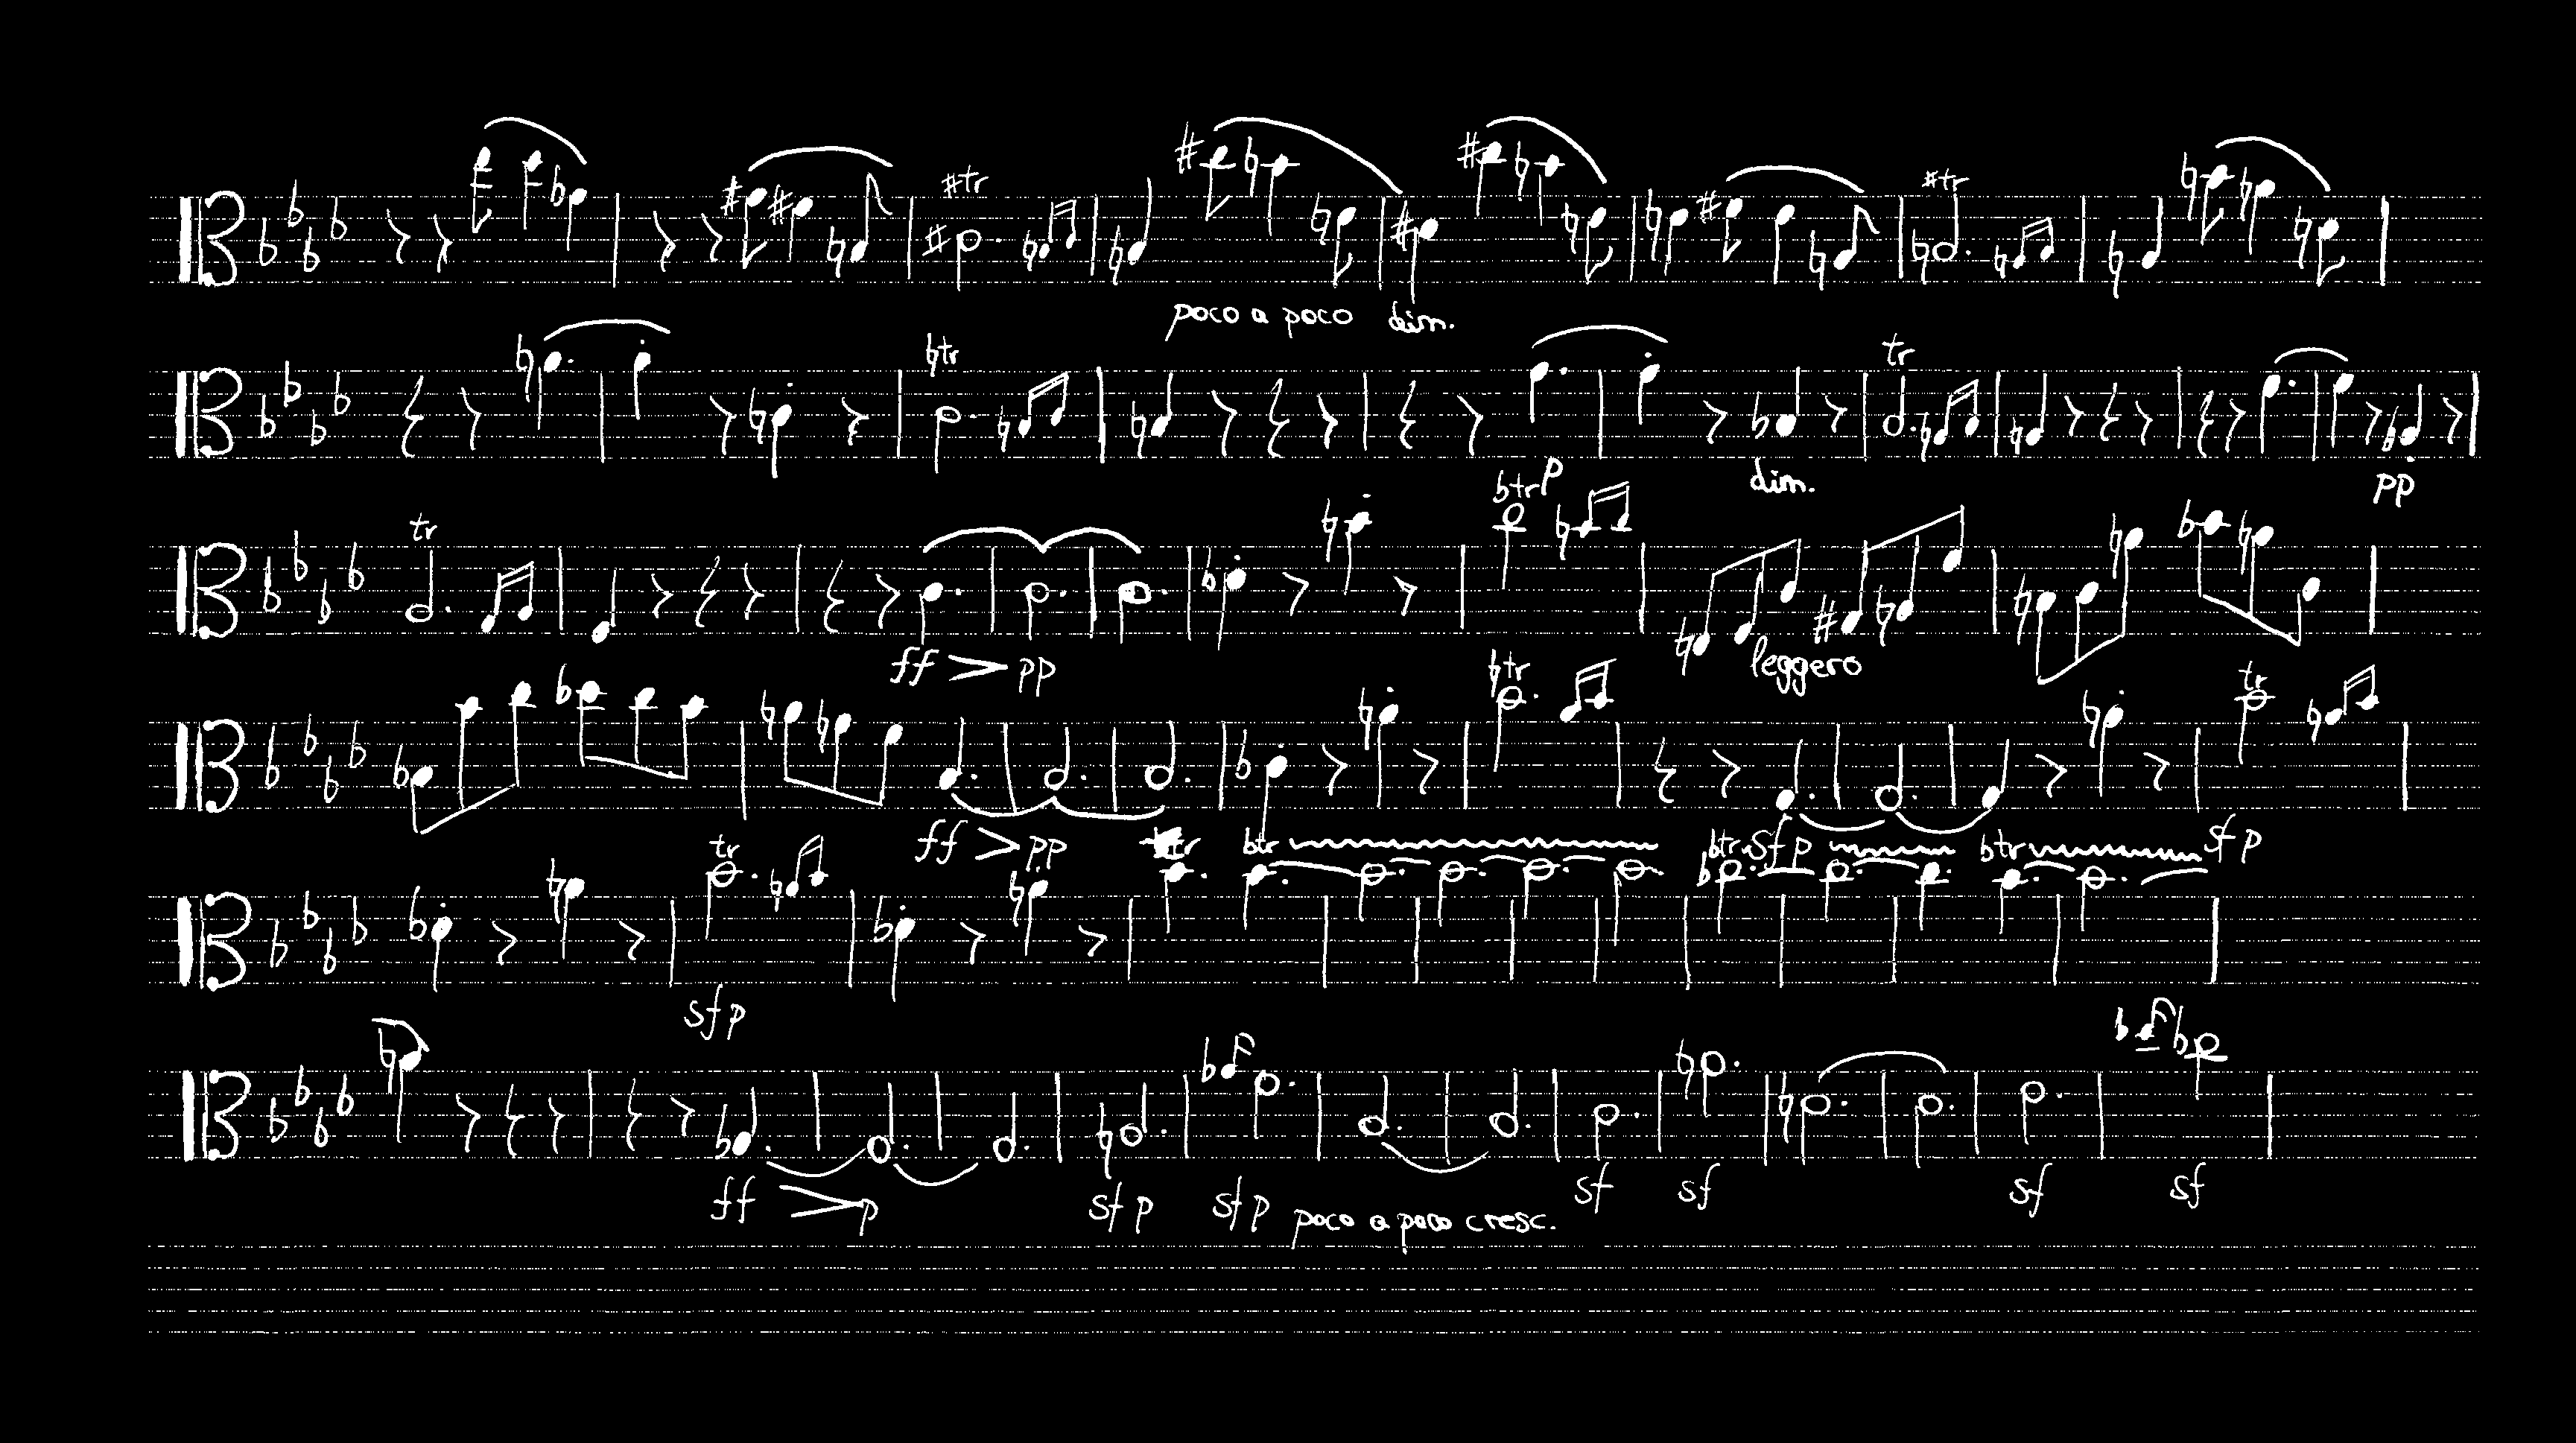 #tr #tr
poco a poco dim.
♮tr tr
dim. pp
tr ♭tr p
ff > pp leggero
♮tr tr
ff > pp sfp sfp
tr tr ♭tr ♭tr ♭tr
sfp
ff > p sfp sfp poco a poco cresc. sf sf sf sf